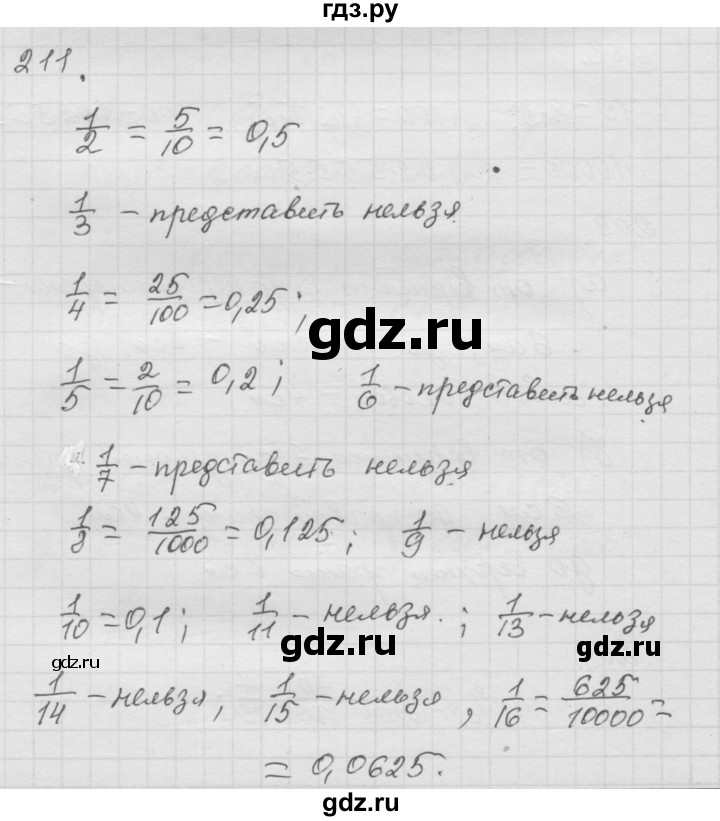 гдз.ру
211.
1/2 = 5/10 = 0,5
1/3 - представить нельзя.
1/4 = 25/100 = 0,25;
gdz.ru
1/5 = 2/10 = 0,2; 1/6 - представить нельзя
1/7 - представить нельзя
1/8 = 125/1000 = 0,125; 1/9 - нельзя
1/10 = 0,1; 1/11 - нельзя.; 1/13 - нельзя
gdz.ru gdz.ru gdz.ru
1/14 - нельзя, 1/15 - нельзя, 1/16 = 625/10000 =
= 0,0625.
gdz.ru